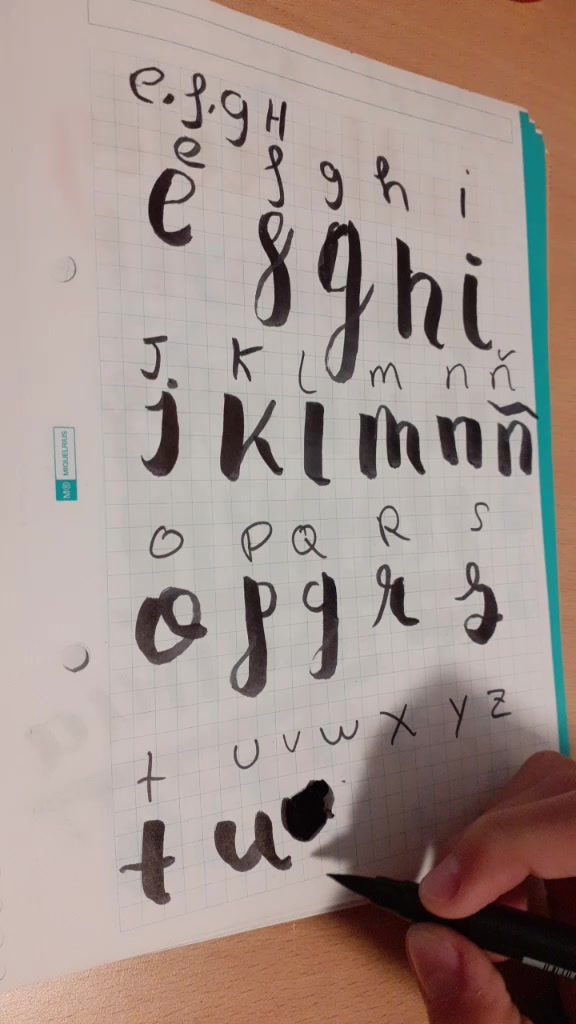 e.f.g H
e f g h i
e f g h i
J K l m n ñ
j k l m n ñ
O P Q R S
o p q r s
t U V W X Y Z
t u
M® MIQUELRIUS